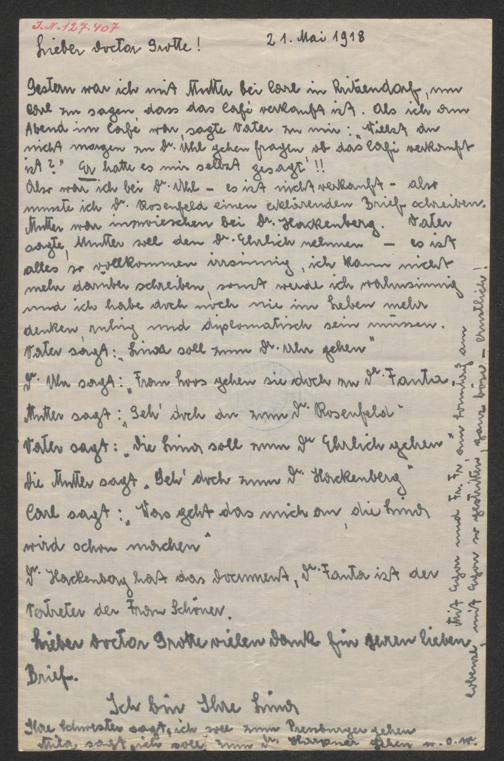 J.N. 127.407
21. Mai 1918
Lieber Doctor Grotte!
Gestern war ich mit Mutter bei Carl in Ritzendorf, um
Carl zu sagen dass das Café verkauft ist. Als ich am
Abend im Café war, sagte Vater zu mir: „Willst du
nicht morgen zu Dr. Uhl gehen fragen ob das Café verkauft
ist?" Er hatte es mir selbst gesagt!!
Also war ich bei Dr. Uhl – es ist nicht verkauft – also
musste ich Dr. Rosenfeld einen erklärenden Brief schreiben.
Mutter war inzwischen bei Dr. Hackenberg. Vater
sagte, Mutter soll den Dr. Ehrlich nehmen – es ist
alles so vollkommen irrsinnig, ich kann nicht
mehr darüber schreiben, sonst werde ich wahnsinnig
und ich habe doch noch nie im Leben mehr
denken ruhig und diplomatisch sein müssen.
Vater sagt: „Lina soll zum Dr. Uhl gehen"
Dr. Uhl sagt: „Frau Loos gehen sie doch zu Dr. Fanta.
Mutter sagt: „Geh' doch du zum Dr. Rosenfeld"
Vater sagt: „Die Lina soll zum Dr. Ehrlich gehen"
Die Mutter sagt „Geh' doch zum Dr. Hackenberg"
Carl sagt: „Was geht das mich an, die Lina
wird schon machen"
Dr. Hackenberg hat das Document, Dr. Fanta ist der
Vertreter der Frau Schöner.
Lieber Doctor Grotte vielen Dank für Ihren lieben
Brief.
Ich bin Ihre Lina
Ihre Schwester sagt, ich soll zum Pressburger gehen
Mila sagt, ich soll zum Dr. Harpner gehen u.s.w.
Mit Egon und Fr. Fr. am Sonntag am
mit Egon so gestritten, ganz böse – ernstlich!